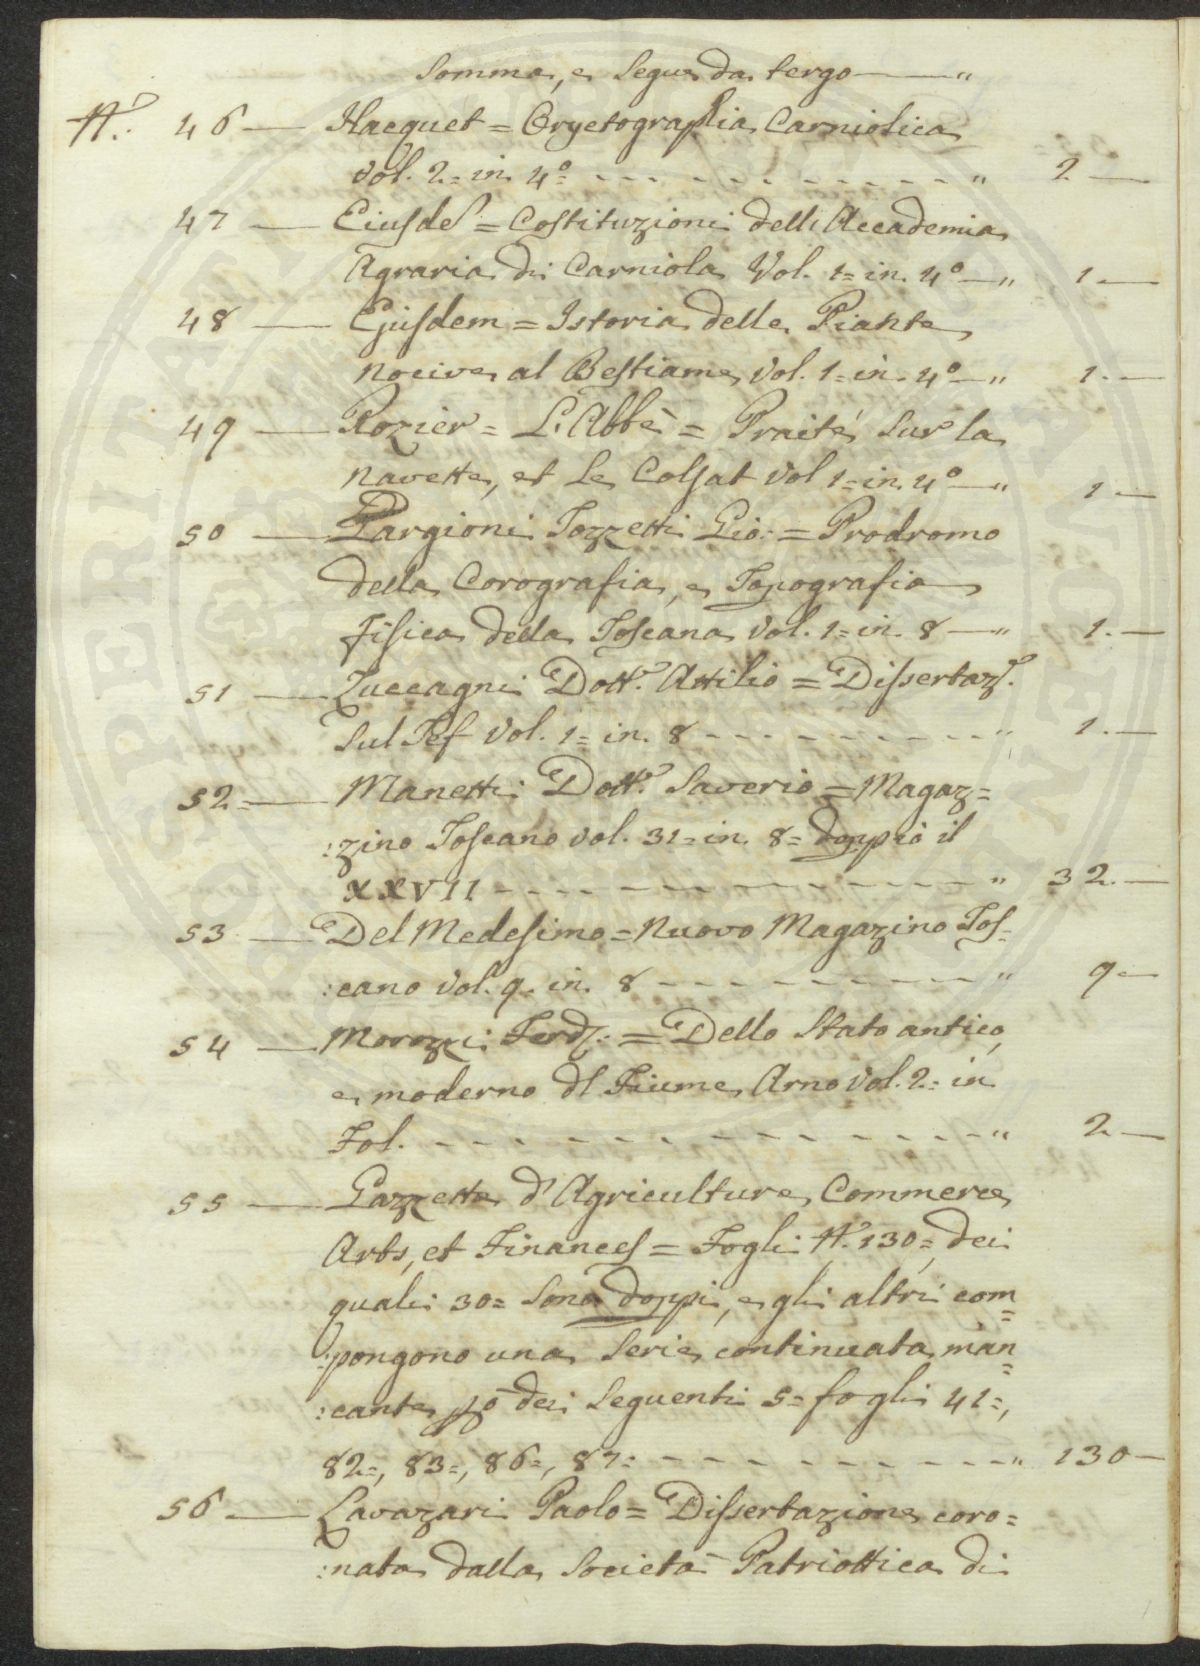 Somma, e Segue da tergo ——— "
N.° 46 — Hacquet = Oryctographia Carniolica
Vol. 2= in 4° - - - - - - - - - - - " 2 —
47 — Eiusdē = Costituzioni dell'Accademia
Agraria di Carniola Vol. 1= in 4° — " 1. —
48 — Ejusdem = Istoria delle Piante
nocive al Bestiame, Vol. 1= in 4° — " 1. —
49 — Rozier = L'Abbè = Traité Sur la
Navette, et Le Colsat Vol 1= in 4° — " 1 —
50 — Targioni Tozzetti Gio: = Prodromo
della Corografia, e Topografia
Fisica della Toscana Vol. 1= in 8 — " 1. —
51 — Zuccagni Dott.r Attilio = Dissertaz.e
Sul Tef Vol. 1= in 8 - - - - - - - - - " 1. —
52= — Manetti Dott.r Saverio = Magaz=
:zino Toscano Vol. 31= in 8= doppio il
XXVII - - - - - - - - - - - - - " 32. —
53 — Del Medesimo = Nuovo Magazino Tos=
:cano Vol. 9. in 8 - - - - - - - - - - " 9 —
54 — Morozzi Ferd.: = Dello Stato antico,
e moderno dl Fiume Arno Vol. 2= in
Fol. - - - - - - - - - - - - - - " 2 —
55 — Gazzetta d'Agriculture, Commerce,
Arts, et Finances = Fogli N.° 130=, dei
quali 30= Sono doppi, e gli altri com=
:pongono una Serie continuata man=
:cante pō dei Seguenti 5= fogli 41=,
82=, 83=, 86=, 87: - - - - - - - - - " 130 —
56 — Lavazari Paolo = Dissertazione coro=
:nata dalla Società Patriottica di